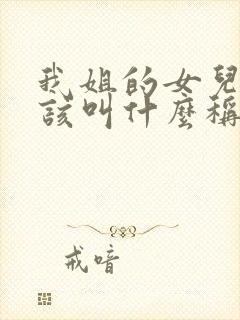 我姐的女兒
該叫什麼稱
戒喑